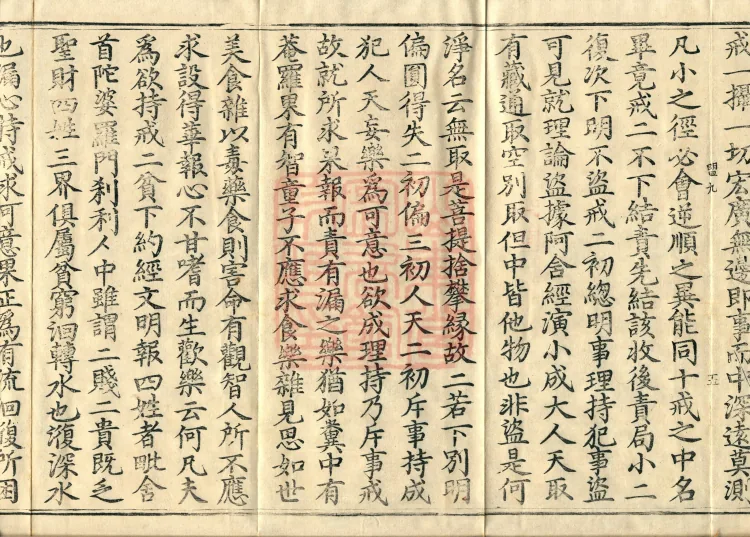 戒一攝一切宏廣無邊即事而中深遠莫測
凡小之徑必會逆順之異能同十戒之中名
畢竟戒二不下結責先結該收後責局小二
復次下明不盜戒二初總明事理持犯事盜
可見就理論盜據阿舍經演小成大人天取
有藏通取空別取但中皆他物也非盜是何
淨名云無取是菩提捨攀緣故二若下別明
偏圓得失二初偏三初人天二初斥事持成
犯人天妄樂為可意也欲成理持乃斥事戒
故就所求果報而責有漏之樂猶如糞中有
菴羅果有智童子不應求食樂雜見思如世
美食雜以毒藥食則害命有觀智人所不應
求設得華報心不甘嗜而生歡樂云何凡夫
為欲持戒二貧下約經文明報四姓者毗舍
首陀婆羅門剎利人中雖謂二賤二貴既乏
聖財四姓三界俱屬貧窮洄轉水也澓深水
也漏心持戒求可意果正為有流洄澓所困
盟九
五